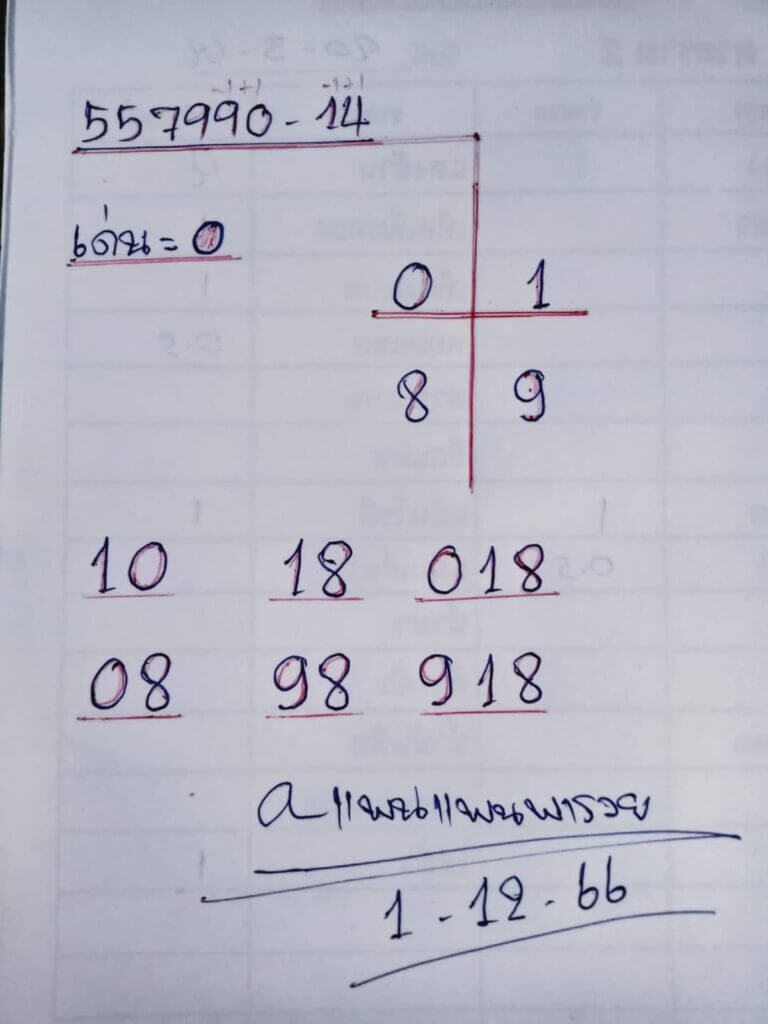 -1+1 -1+1
557990-14
เด่น = 0
0 1
8 9
10 18 018
08 98 918
อ.แพนแพนพารวย
1-12-66